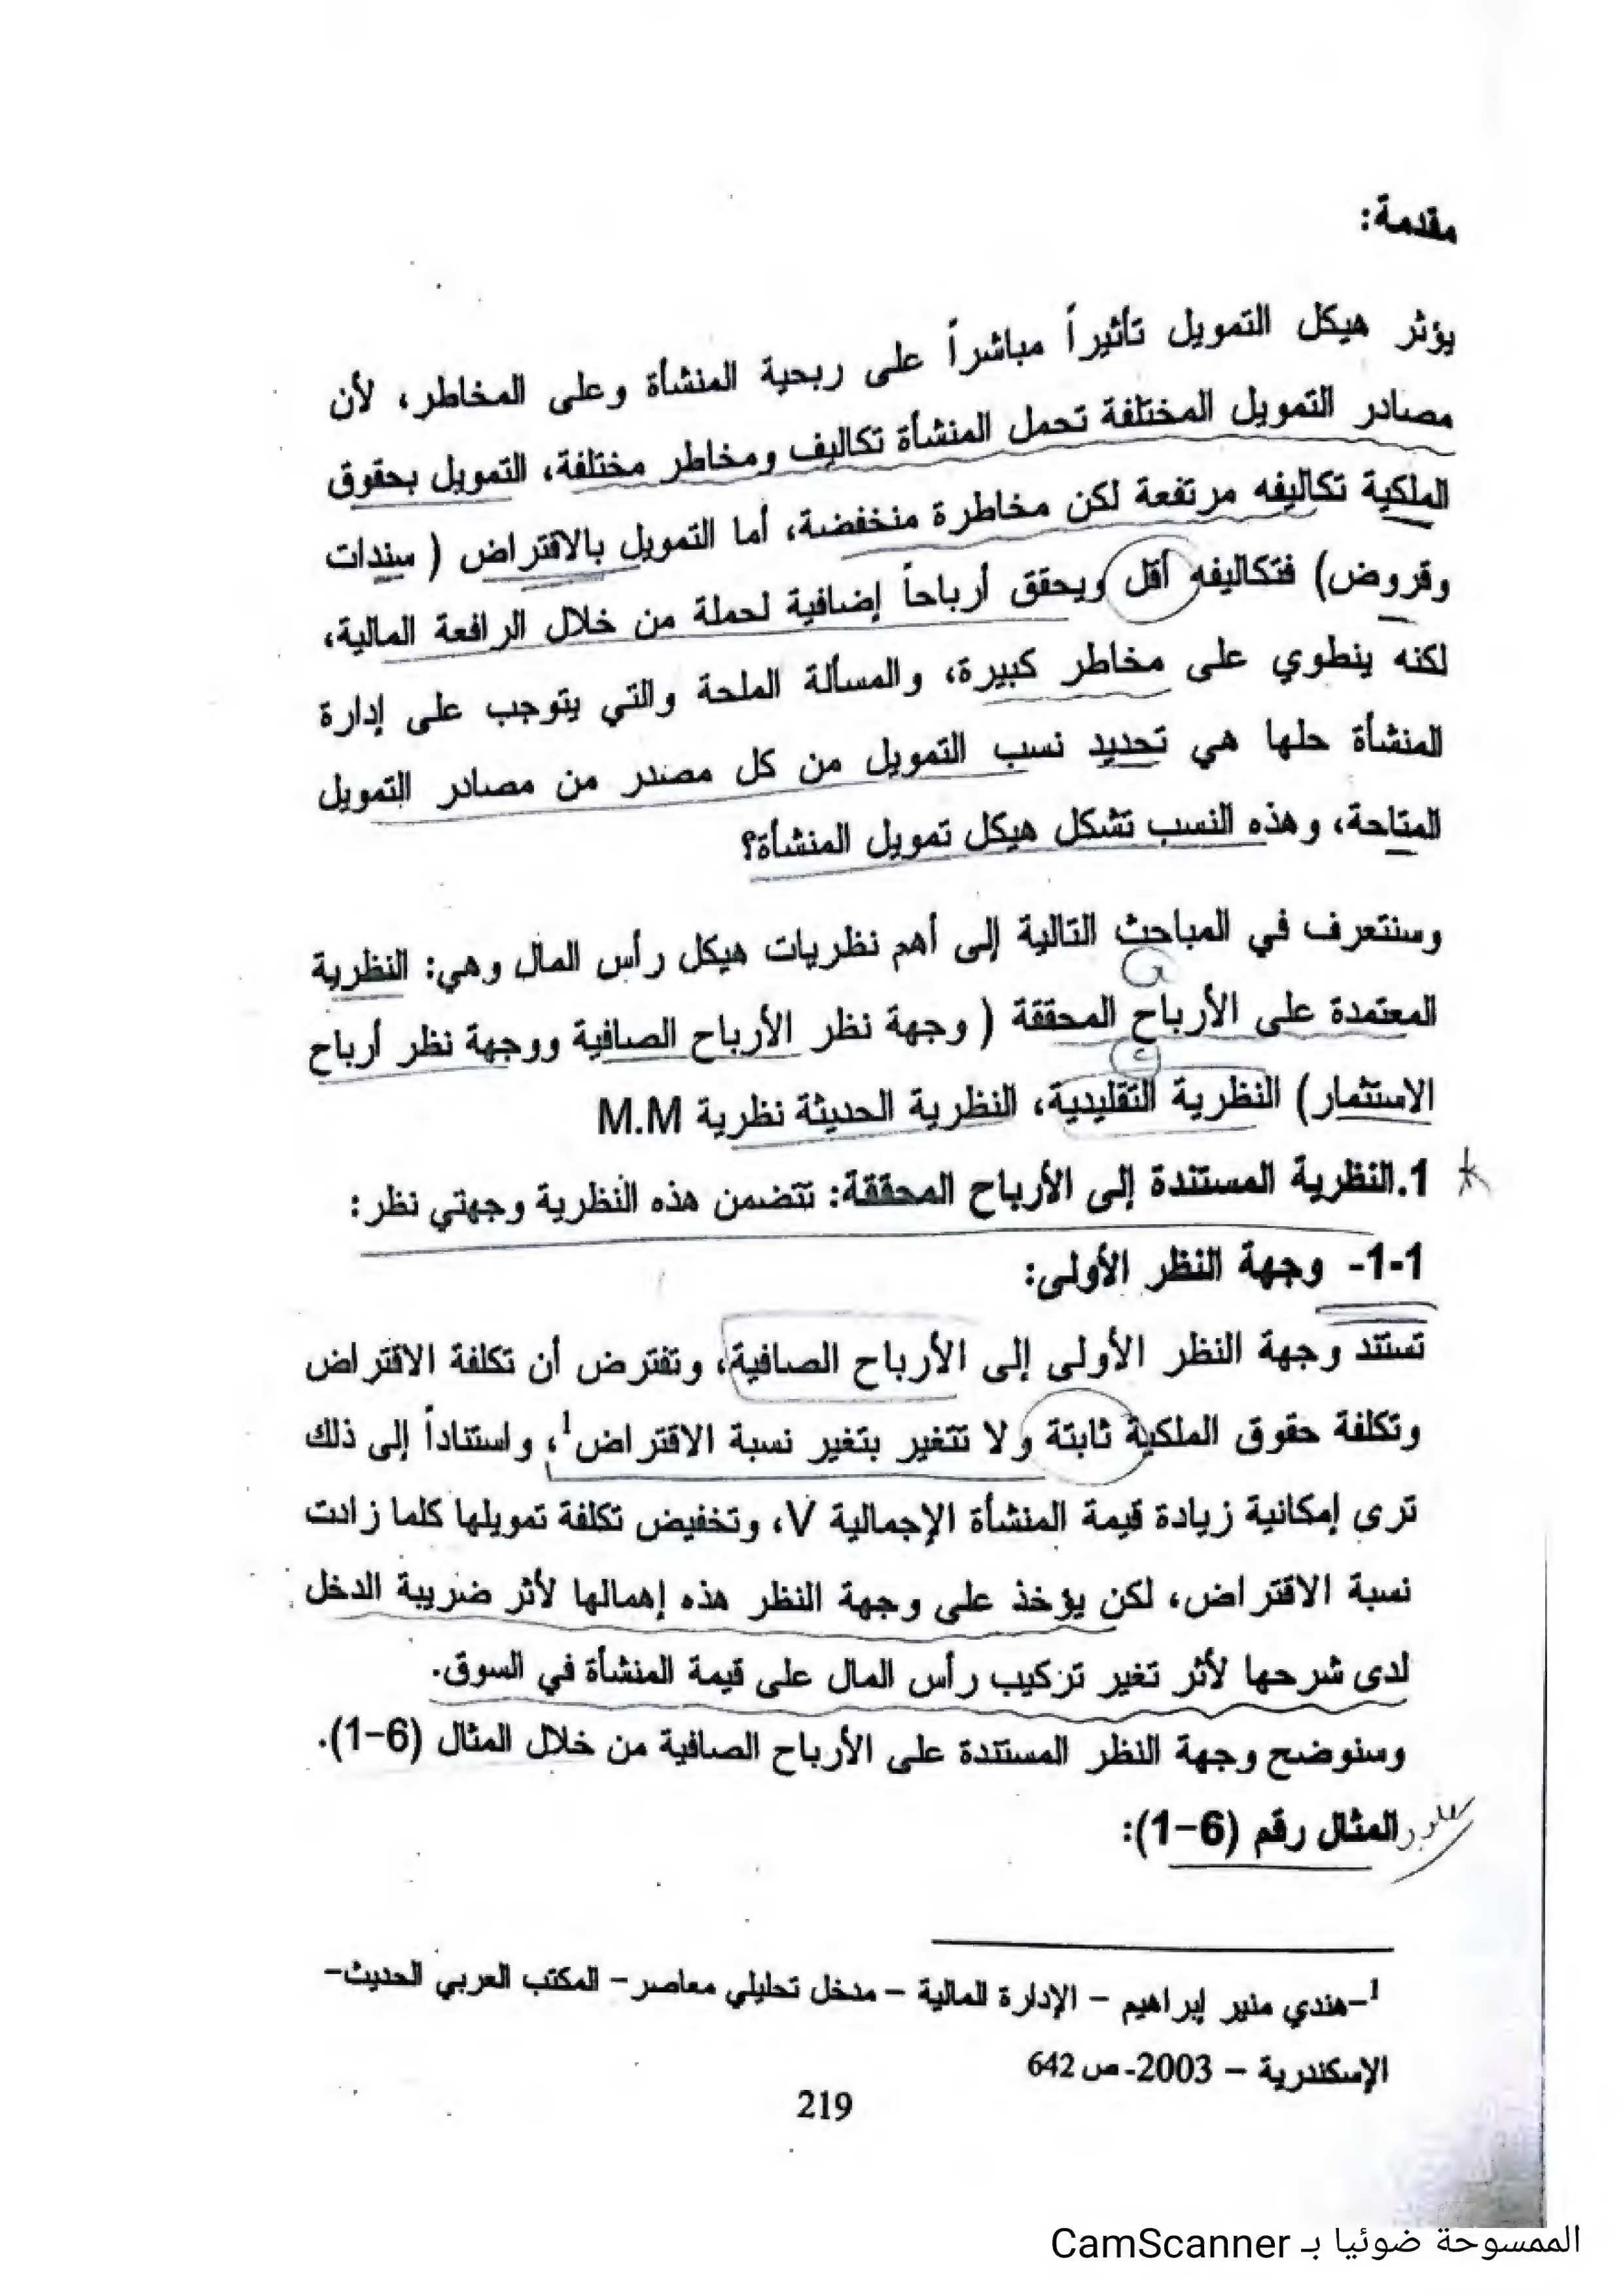 مقدمة:
يؤثر هيكل التمويل تأثيراً مباشراً على ربحية المنشأة وعلى المخاطر، لأن
مصادر التمويل المختلفة تحمل المنشأة تكاليف ومخاطر مختلفة، التمويل بحقوق
الملكية تكاليفه مرتفعة لكن مخاطرة منخفضة، أما التمويل بالاقتراض ( سندات
وقروض) فتكاليفه أقل ويحقق أرباحاً إضافية لحملة من خلال الرافعة المالية،
لكنه ينطوي على مخاطر كبيرة، والمسألة الملحة والتي يتوجب على إدارة
المنشأة حلها هي تحديد نسب التمويل من كل مصدر من مصادر التمويل
المتاحة، وهذه النسب تشكل هيكل تمويل المنشأة؟
وسنتعرف في المباحث التالية إلى أهم نظريات هيكل رأس المال وهي: النظرية
المعتمدة على الأرباح المحققة ( وجهة نظر الأرباح الصافية ووجهة نظر أرباح
الاستثمار) النظرية التقليدية، النظرية الحديثة نظرية M.M
1.النظرية المستندة إلى الأرباح المحققة: تتضمن هذه النظرية وجهتي نظر:
1-1- وجهة النظر الأولى:
تستند وجهة النظر الأولى إلى الأرباح الصافية، وتفترض أن تكلفة الاقتراض
وتكلفة حقوق الملكية ثابتة ولا تتغير بتغير نسبة الاقتراض1، واستناداً إلى ذلك
ترى إمكانية زيادة قيمة المنشأة الإجمالية V، وتخفيض تكلفة تمويلها كلما زادت
نسبة الاقتراض، لكن يؤخذ على وجهة النظر هذه إهمالها لأثر ضريبة الدخل
لدى شرحها لأثر تغير تركيب رأس المال على قيمة المنشأة في السوق.
وسنوضح وجهة النظر المستندة على الأرباح الصافية من خلال المثال (6-1).
المثال رقم (6-1):
1-هندي منير إبراهيم - الإدارة المالية - مدخل تحليلي معاصر- المكتب العربي الحديث-
الإسكندرية - 2003- ص 642
219
الممسوحة ضوئيا بـ CamScanner